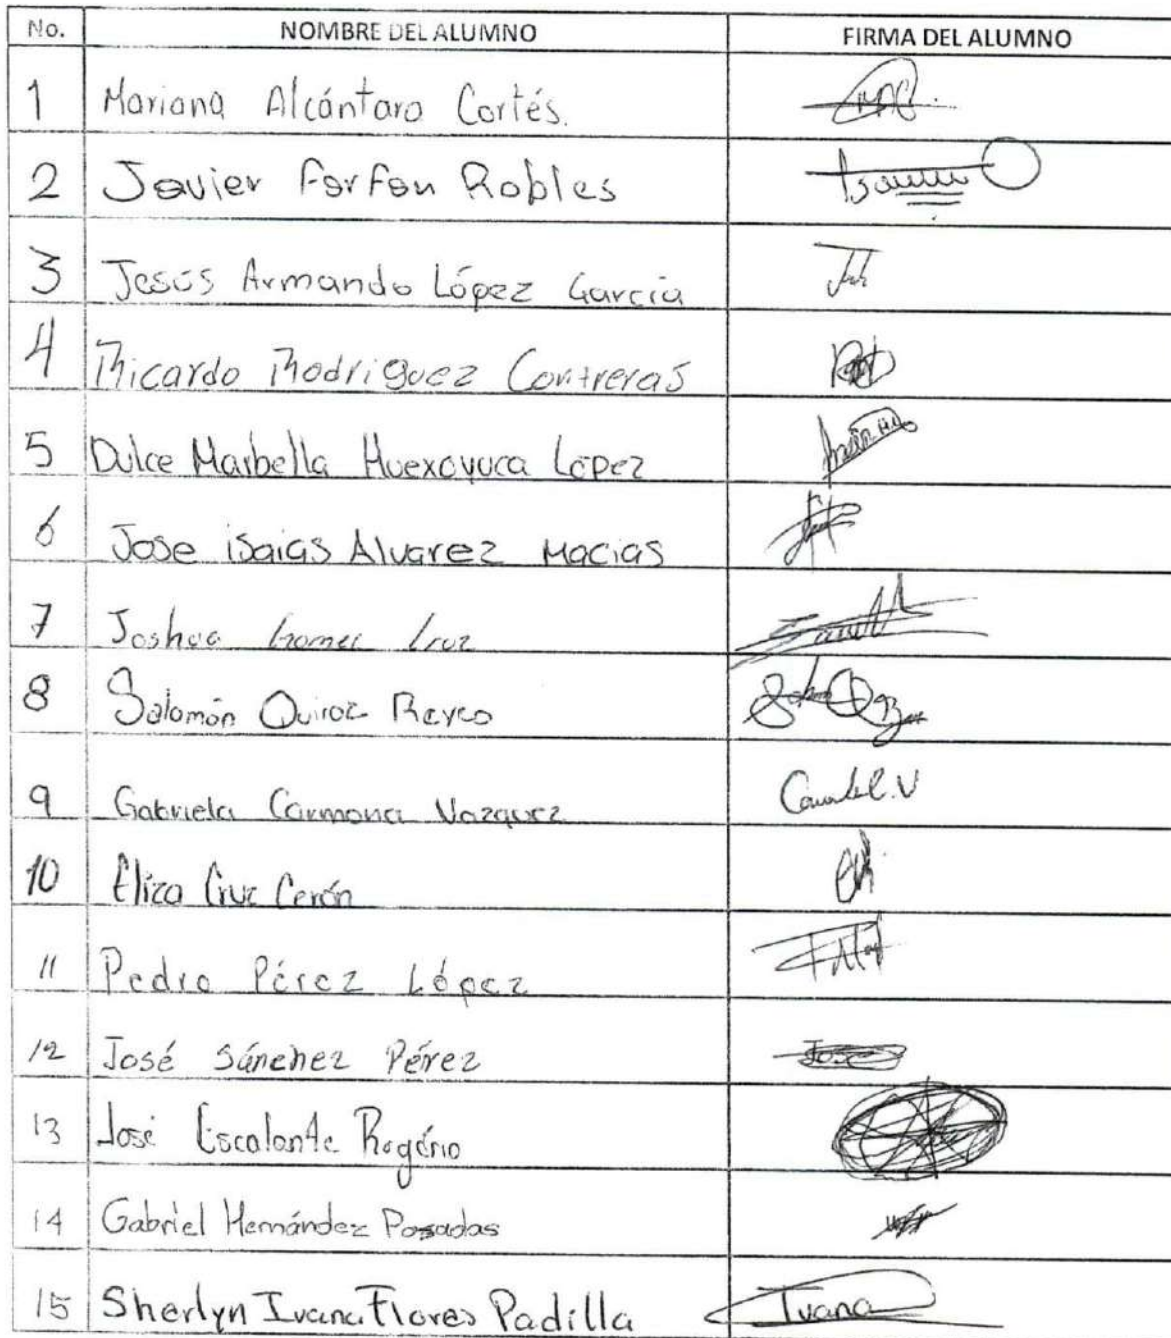 No. NOMBRE DEL ALUMNO FIRMA DEL ALUMNO
1 Mariana Alcántara Cortés. MAC.
2 Javier Farfan Robles
3 Jesús Armando López García
4 Ricardo Rodriguez Contreras
5 Dulce Marbella Huexoyuca López
6 Jose isaias Alvarez Macias
7 Joshua Gomez Cruz
8 Salomón Quiroz Reyes
9 Gabriela Carmona Vazquez
10 Eliza Cruz Cerón
11 Pedro Pérez López
12 José Sánchez Pérez José
13 José Escalante Rogério
14 Gabriel Hernández Posadas
15 Sherlyn Ivana Flores Padilla Ivana